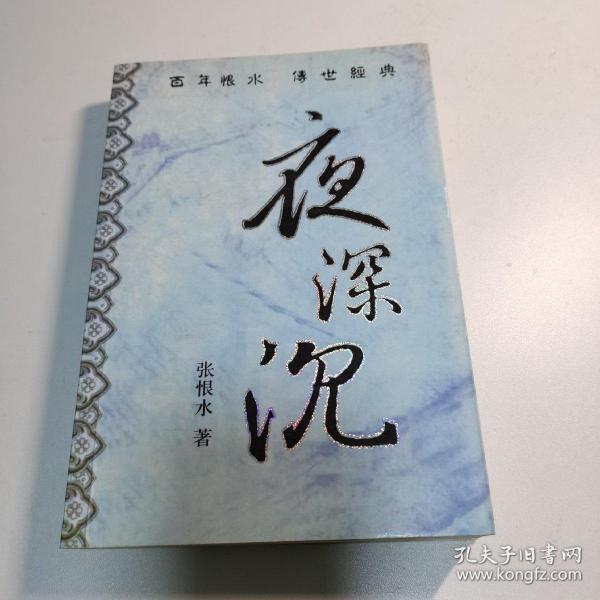 百年恨水 傳世經典
夜深沉
张恨水 著
孔夫子旧书网
www.kongfz.com